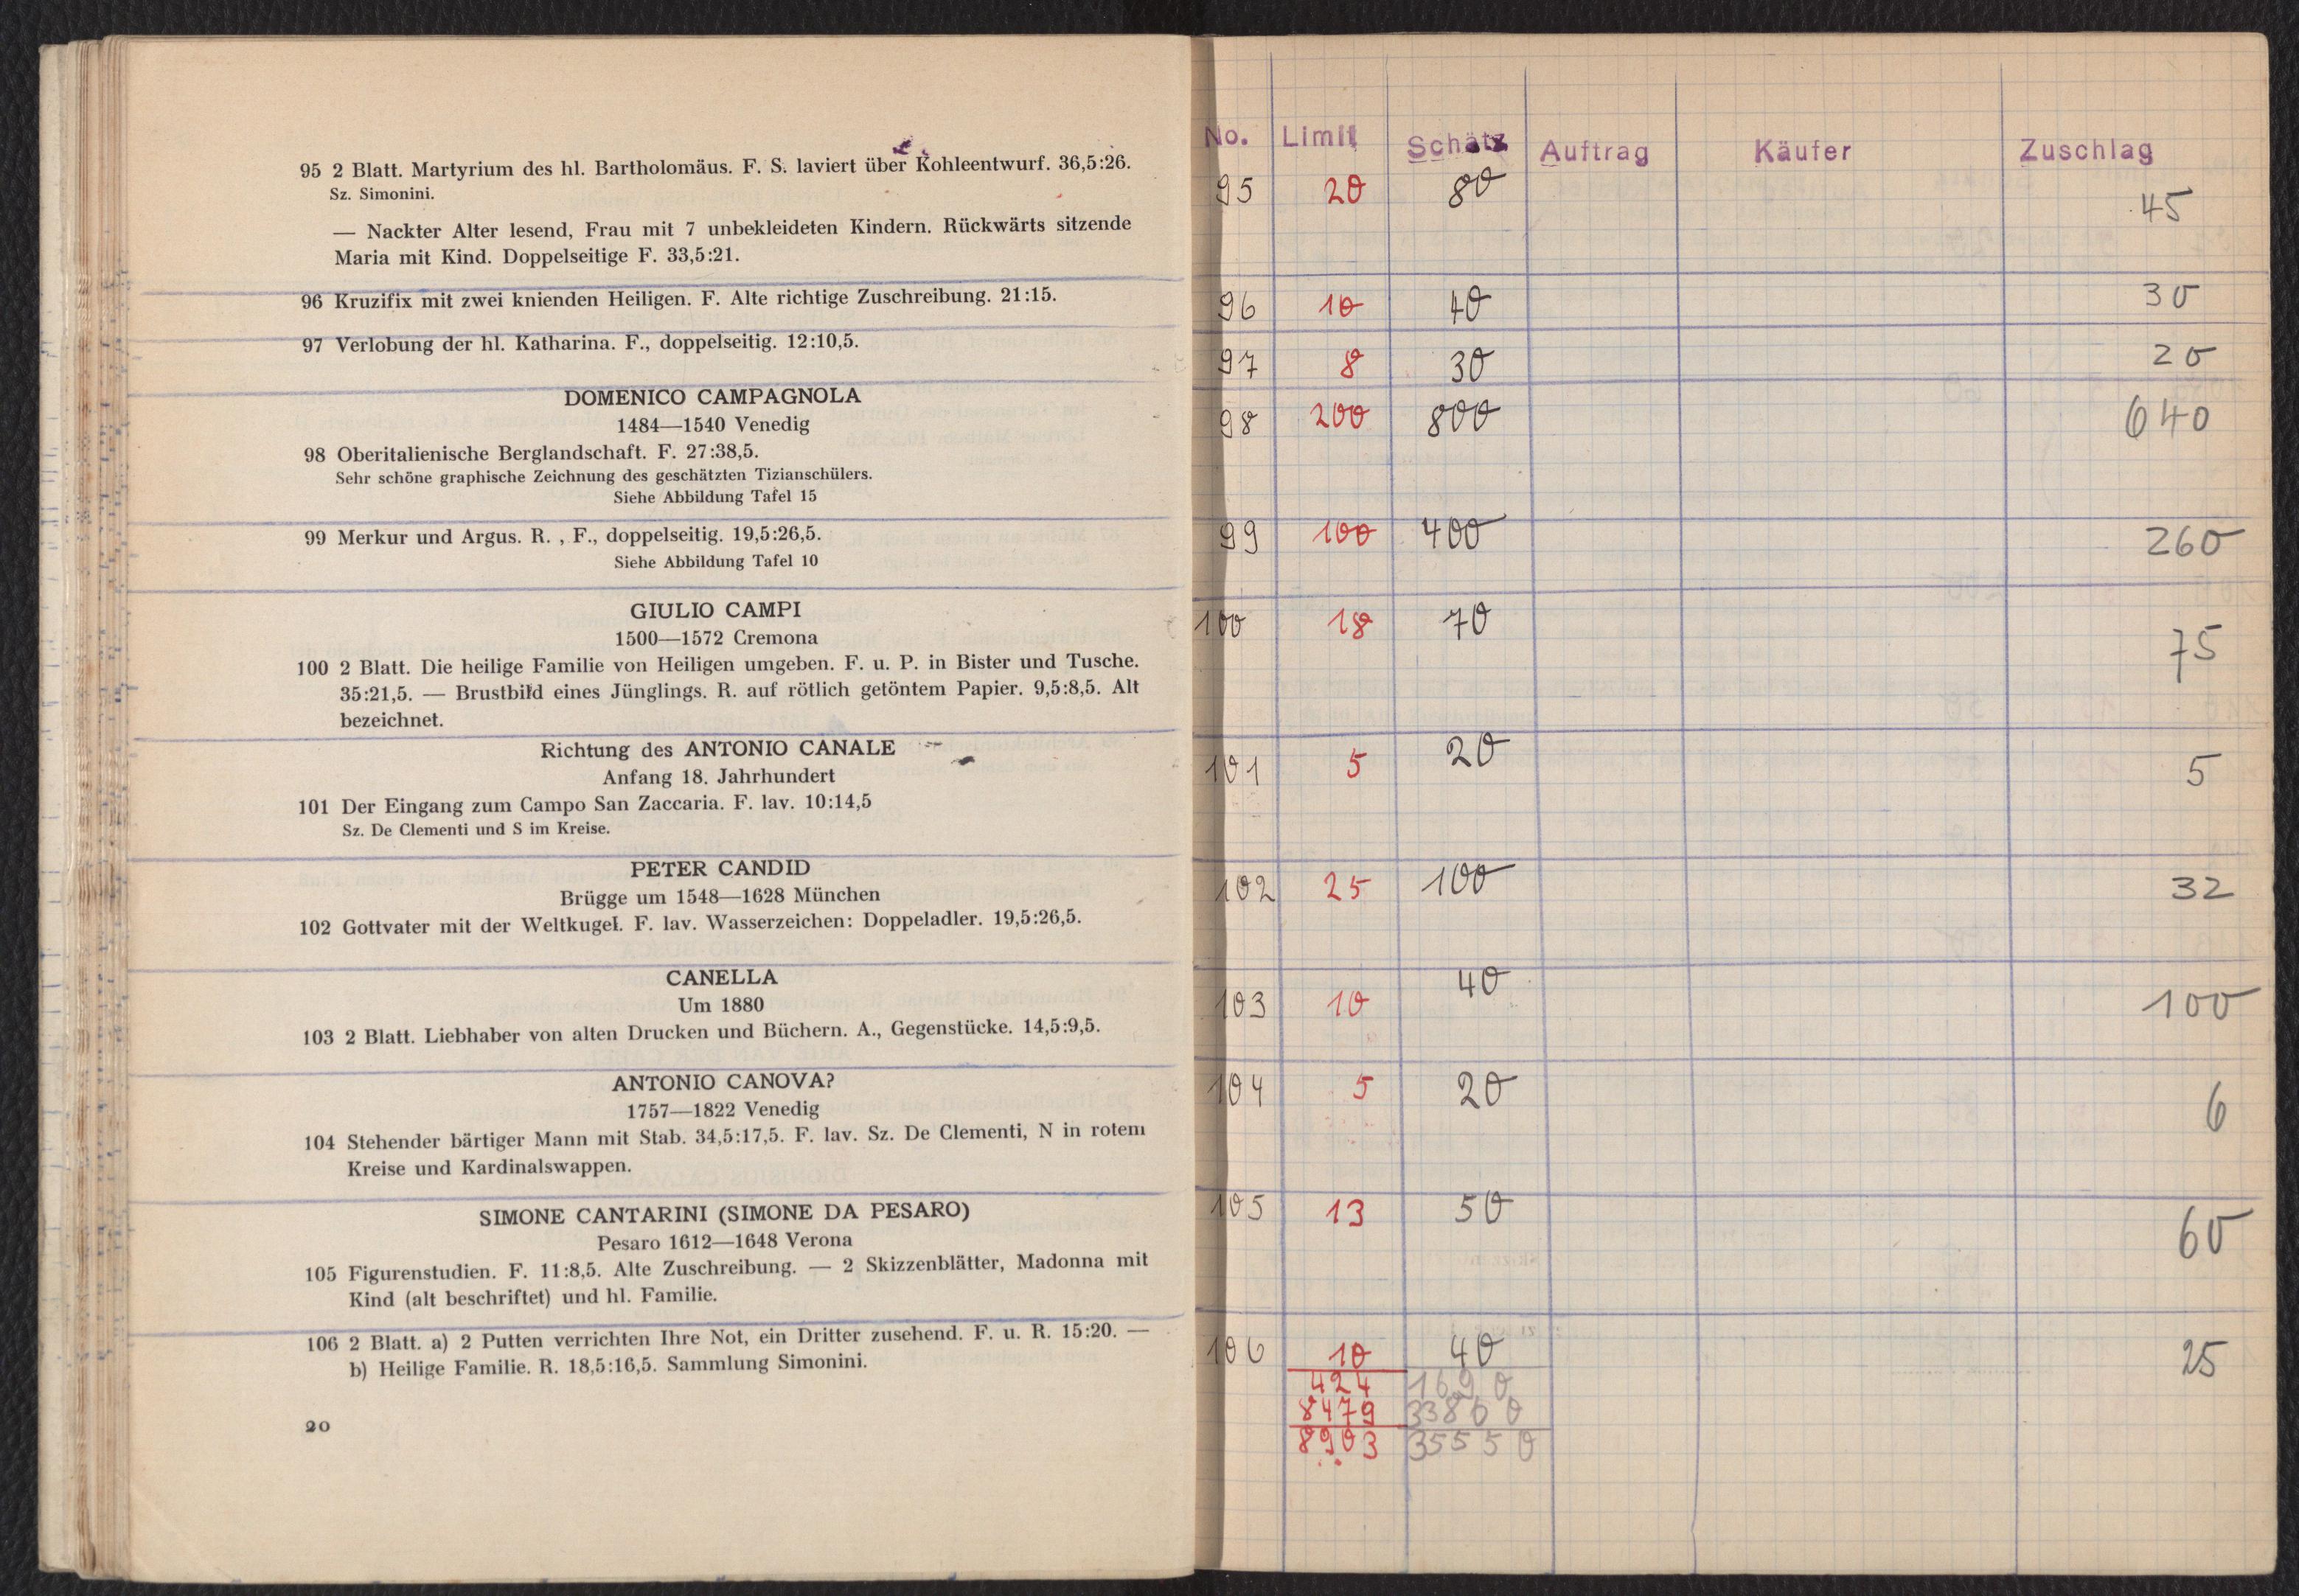 95 2 Blatt. Martyrium des hl. Bartholomäus. F. S. laviert über Kohleentwurf. 36,5:26.
Sz. Simonini.
— Nackter Alter lesend, Frau mit 7 unbekleideten Kindern. Rückwärts sitzende
Maria mit Kind. Doppelseitige F. 33,5:21.
96 Kruzifix mit zwei knienden Heiligen. F. Alte richtige Zuschreibung. 21:15.
97 Verlobung der hl. Katharina. F., doppelseitig. 12:10,5.
DOMENICO CAMPAGNOLA
1484—1540 Venedig
98 Oberitalienische Berglandschaft. F. 27:38,5.
Sehr schöne graphische Zeichnung des geschätzten Tizianschülers.
Siehe Abbildung Tafel 15
99 Merkur und Argus. R. , F., doppelseitig. 19,5:26,5.
Siehe Abbildung Tafel 10
GIULIO CAMPI
1500—1572 Cremona
100 2 Blatt. Die heilige Familie von Heiligen umgeben. F. u. P. in Bister und Tusche.
35:21,5. — Brustbild eines Jünglings. R. auf rötlich getöntem Papier. 9,5:8,5. Alt
bezeichnet.
Richtung des ANTONIO CANALE
Anfang 18. Jahrhundert
101 Der Eingang zum Campo San Zaccaria. F. lav. 10:14,5
Sz. De Clementi und S im Kreise.
PETER CANDID
Brügge um 1548—1628 München
102 Gottvater mit der Weltkugel. F. lav. Wasserzeichen: Doppeladler. 19,5:26,5.
CANELLA
Um 1880
103 2 Blatt. Liebhaber von alten Drucken und Büchern. A., Gegenstücke. 14,5:9,5.
ANTONIO CANOVA?
1757—1822 Venedig
104 Stehender bärtiger Mann mit Stab. 34,5:17,5. F. lav. Sz. De Clementi, N in rotem
Kreise und Kardinalswappen.
SIMONE CANTARINI (SIMONE DA PESARO)
Pesaro 1612—1648 Verona
105 Figurenstudien. F. 11:8,5. Alte Zuschreibung. — 2 Skizzenblätter, Madonna mit
Kind (alt beschriftet) und hl. Familie.
106 2 Blatt. a) 2 Putten verrichten Ihre Not, ein Dritter zusehend. F. u. R. 15:20. —
b) Heilige Familie. R. 18,5:16,5. Sammlung Simonini.
20
No. Limit Schätz Auftrag Käufer Zuschlag
95 20 80 45
96 10 40 30
97 8 30 20
98 200 800 640
99 100 400 260
100 18 70 75
101 5 20 5
102 25 100 32
103 10 40 100
104 5 20 6
105 13 50 60
106 10 40 25
424 1690
8479 33860
8903 35550